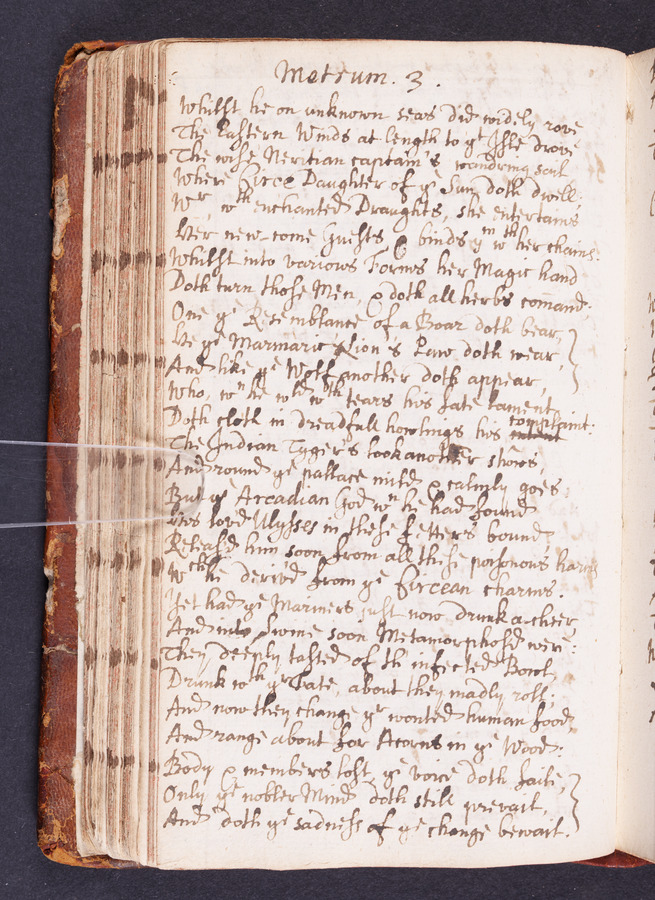 Metrum. 3.
Whilst he on unknown seas did widely rove
The Eastern Winds at length to ye Isle drove
The wise Neritian captain's wandring sail
Where Circe Daughter of ye Sun doth dwell;
Wr, wth enchanted Draughts, she entertains
Her new-come Guests, & binds ym wth her chains:
Whilst into various Forms her Magic hand
Doth turn those Men, & doth all herbs comand.
One ye Resemblance of a Boar doth bear,
He ye Marmaric Lion's Paw doth wear,
And like ye Wolf another doth appear,
Who, wn he wld wth tears his fate lament
Doth cloth in dreadfull howlings his intent complaint.
The Indian Tyger's look another shows,
And round ye pallace mild & calmly goes;
But ye Arcadian God wn he had found
His lov'd Ulysses in these fetters bound
Releas'd him soon from all these poisonous harms
Wch he deriv'd from ye Circean charms.
Yet had ye Mariners just now drunk a-cheer
And into Swine soon Metamorphosd were:
They deeply tasted of th' infected Bowl,
Drunk wth yr Fate, about they madly roll;
And now they change yr wonted human food,
And range about for Acorns in ye Wood:
Body & members lost, ye voice doth faile,
Only ye nobler Mind doth still prevail,
And doth ye sadness of ye change bewail.